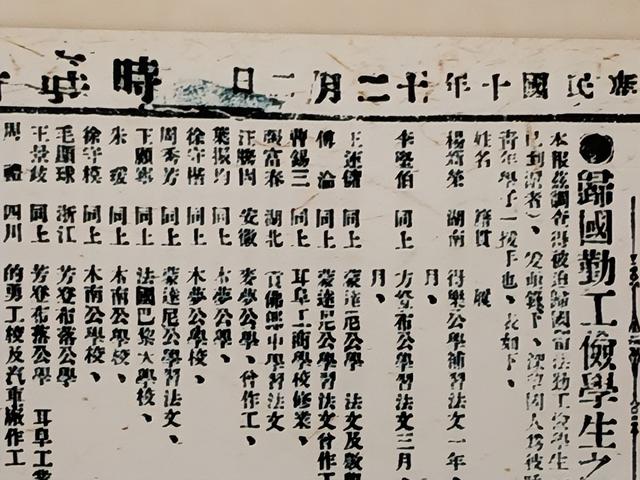 民國十年十二月二日 時
●歸國勤工儉學生之
本報茲調查得被迫歸國留法勤工儉學生
已到滬者）、錄下、深望國人爲彼
青年學子一援手也、表如下、
姓名 籍貫 履
楊榮 湖南 得樂公學補習法文一年、
月、
李堅伯 同上 方登布公學習法文三月、
月、
王運儲 同上 蒙達尼公學 法文及數學
傅淪 同上 蒙達尼公學習法文曾作工
曹錫三 同上 耳阜工商學校修業、
張富春 湖北 佛郎中學習法文
汪勝 安徽 麥夢公學、曾作工、
葉振均 同上 木夢公學、
徐守楷 同上 木夢公學校、
周秀芳 同上 蒙達尼公學習法文、
卞顧 同上 法國巴黎大學校、
朱 同上 木南公學校、
徐守模 同上 木南公學校、
毛顯球 浙江 芳登布落公學
王景歧 同上 芳登布落公學 耳阜工業
周禮 四川 的勇工校及汽車廠作工